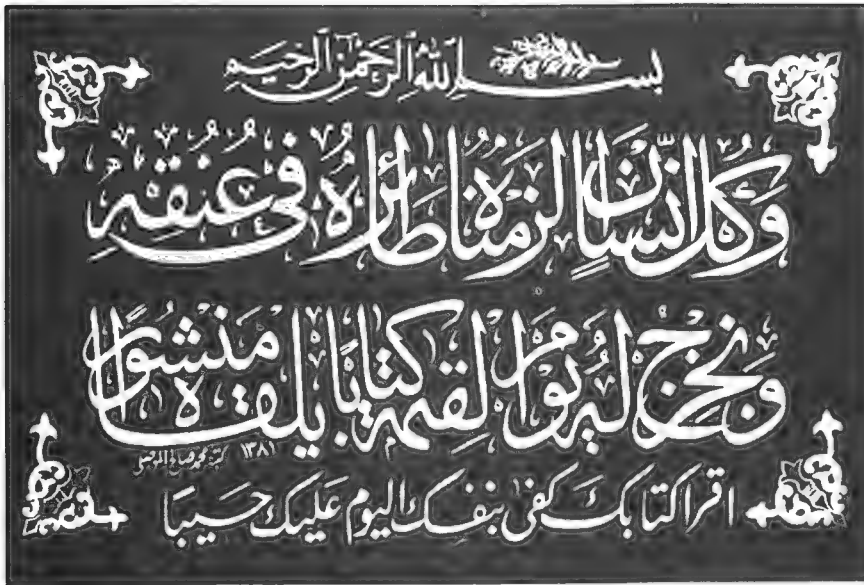 بسم الله الرحمن الرحيم
وَكُلَّ اِنْسَانٍ اَلْزَمْنَاهُ طَائِرَهُ فِي عُنُقِهِ
وَنُخْرِجُ لَهُ يَوْمَ الْقِيٰمَةِ كِتَابًا يَلْقَاهُ مَنْشُورًا
كتبه محمد صالح الموصلي ١٣٨١
اقرا كتابك كفى بنفسك اليوم عليك حسيبا